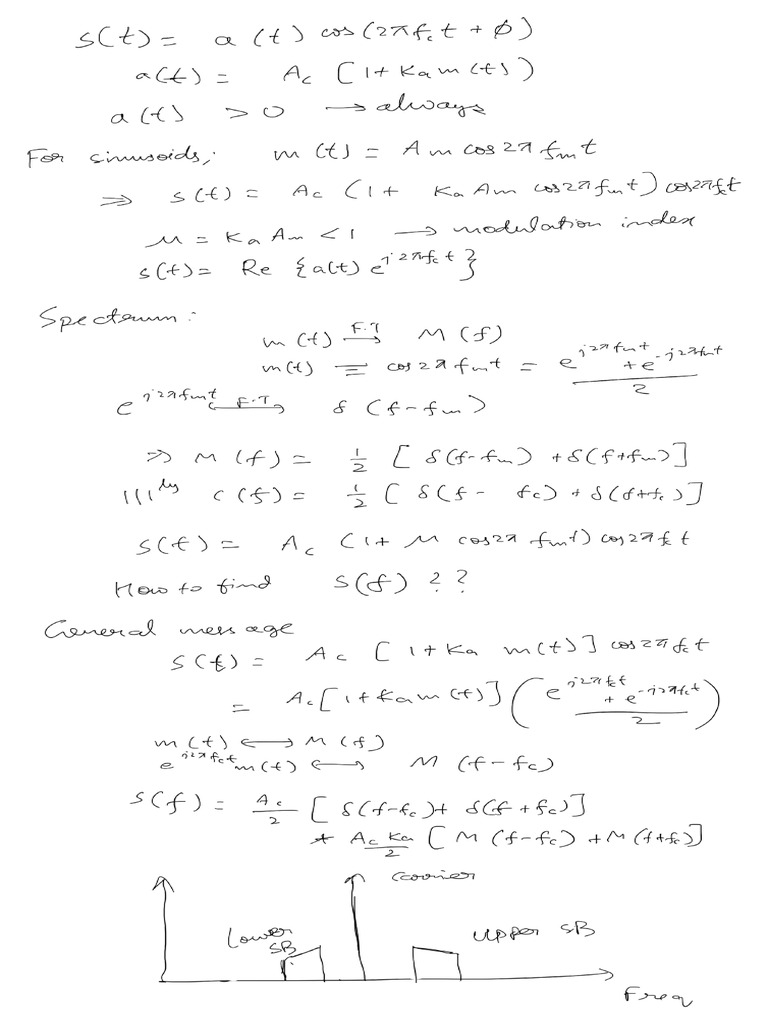 s(t) = a(t) cos(2πf_c t + φ)
a(t) = A_c [1 + K_a m(t))
a(t) > 0 → always
For sinusoids; m(t) = A_m cos2π f_m t
⇒ s(t) = A_c (1 + K_a A_m cos2πf_m t) cos2πf_c t
μ = K_a A_m < 1 → modulation index
s(t) = Re {a(t) e^{j2πf_c t}}
Spectrum:
m(t) —F.T→ M(f)
m(t) ≡ cos2πf_m t = (e^{j2πf_m t} + e^{-j2πf_m t})/2
e^{j2πf_m t} ←F.T→ δ(f-f_m)
⇒ M(f) = 1/2 [δ(f-f_m) + δ(f+f_m)]
|||ly c(f) = 1/2 [δ(f - f_c) + δ(f+f_c)]
s(t) = A_c (1 + μ cos2π f_m t) cos2πf_c t
How to find s(f) ??
General message
s(t) = A_c [1 + K_a m(t)] cos2πf_c t
= A_c [1 + K_a m(t)] ((e^{j2πf_c t} + e^{-j2πf_c t})/2)
m(t) ↔ M(f)
e^{j2πf_c t} m(t) ↔ M(f-f_c)
s(f) = A_c/2 [δ(f-f_c) + δ(f+f_c)]
+ A_c K_a/2 [M(f-f_c) + M(f+f_c)]
carrier
Lower SB
Upper SB
Freq